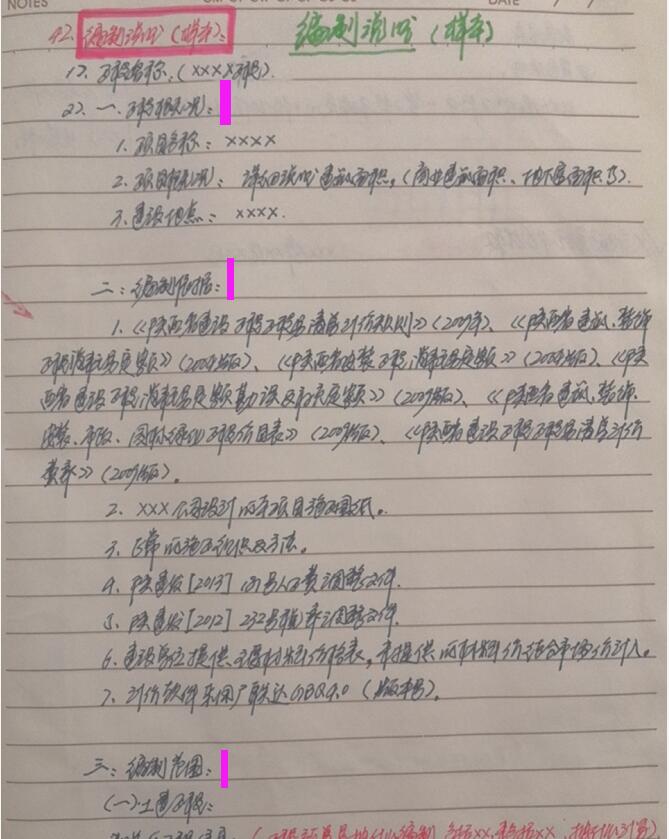 NOTES
DATE / /
42. 编制说明(样本): 编制说明(样本)
1). 工程名称:(XXXX工程).
2). 一、工程概况:
1. 项目名称: XXXX
2. 项目概况: 详细说明建筑面积,(商业建筑面积、地下室面积等).
3. 建设地点: XXXX.
二: 编制依据:
1.《陕西省建设工程工程量清单计价规则》(2009年)、《陕西省建筑、装饰
工程消耗量定额》(2004版)、《陕西省安装工程消耗量定额》(2004版)、《陕
西省建设工程消耗量定额勘误及补充定额》(2009版)、《陕西省建筑、装饰、
安装、市政、园林绿化工程价目表》(2009版)、《陕西省建设工程工程量清单计价
费率》(2009版)。
2. XXX公司设计的本项目施工图纸。
3. 正常的施工组织及方法。
4. 陕建发[2013] 181号人工费调整文件.
5. 陕建发[2012] 232号税率调整文件.
6. 建设单位提供主要材料价格表,未提供的材料价结合市场价计入。
7. 计价软件采用广联达GBQ4.0(版本号)。
三: 编制范围:
(一)土建工程: